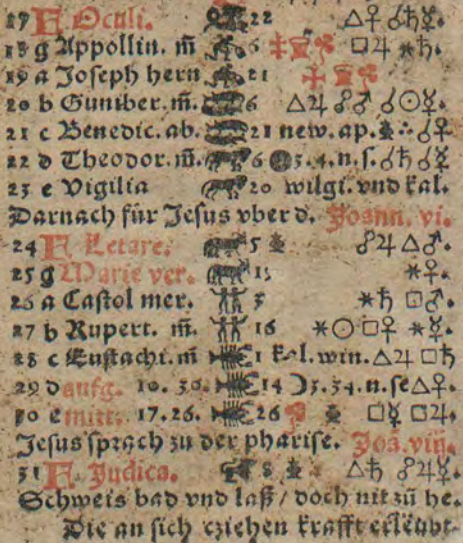 17 F Oculi. 22 △♀ ☌♄☿.
18 g Appollin. m̄ 6 □♃ ⚹♄.
19 a Joseph hern 21
20 b Guntber. m̄. 6 △♃ ☍♂ ☌☉☿.
21 c Benedic. ab. 21 new. ap. ☌♀
22 d Theodor. m̄. 6 5.4.n.s. ☌♄ ☌☿
23 e Vigilia 20 wilgi. vnd kal.
Darnach für Jesus vber d. Joann. vi.
24 F Letare. 5 ☍♃ △♂.
25 g Marie ver. 15 ⚹♀.
26 a Castol mer. 3 ⚹♄ □♂.
27 b Rupert. m̄. 16 ⚹☉ □♀ ⚹☿.
28 c Eustachi. m̄ 1 kal. win. △♃ □♄
29 d aufg. 10. 30. 14 ☽5.34.n.se △♀.
30 e mitt. 17.26. 26 □☿ □♃.
Jesus sprach zu der pharise. Joā. viij.
31 F Judica. 8 △♄ ☍♃☿.
Schweis bad vnd laß / doch nit zū be.
Die an sich cziehen krafft erleubt-